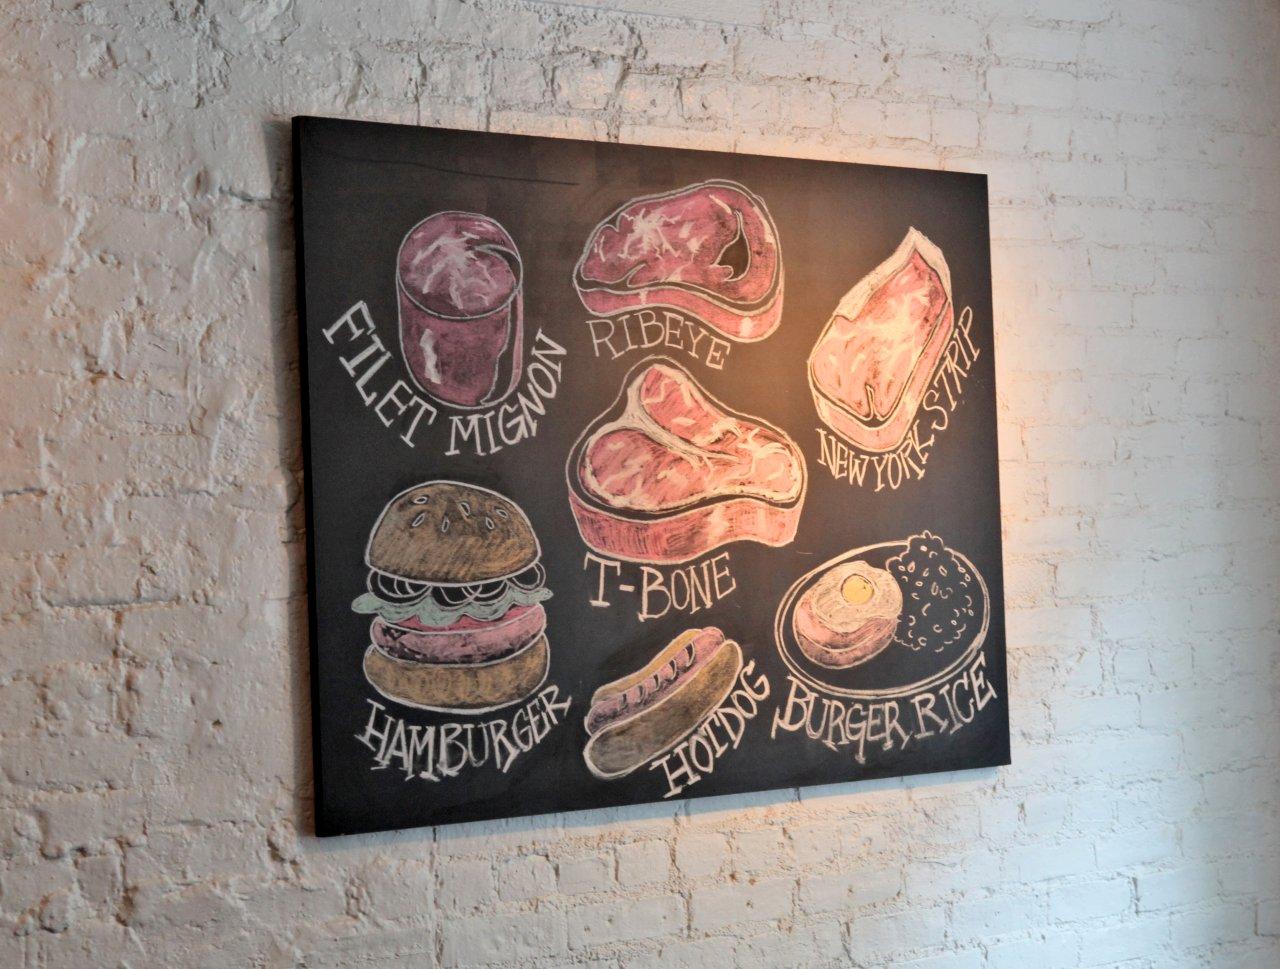 FILET MIGNON
RIBEYE
NEW YORK STRIP
T-BONE
HAMBURGER
HOTDOG
BURGER RICE